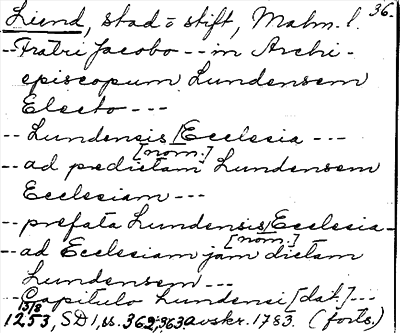 Lund, stad = stift, Malm. l. 36.
-- Fratri Jacobo -- in Archi-
episcopum Lundensem
Electo ---
-- Lundensis [nom.] Ecclesia ---
-- ad predictam Lundensem
Ecclesiam ---
-- prefata Lundensis [nom.] Ecclesia --
-- ad Ecclesiam jam dictam
Lundensem ---
-- Capitulo Lundensi [dat.] ---
13/8 1253, SD 1, ss. 362, 363 avskr. 1783. (forts.)